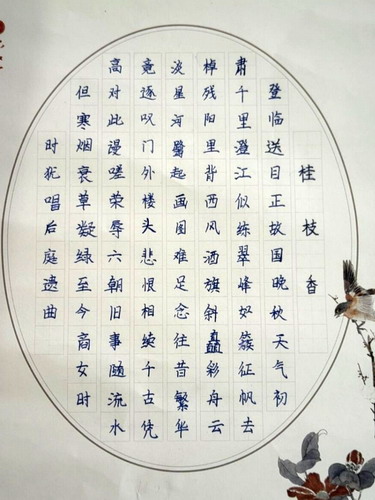 桂枝香
登临送目正故国晚秋天气初
肃千里澄江似练翠峰如簇征帆去
棹残阳里背西风酒旗斜矗彩舟云
淡星河鹭起画图难足念往昔繁华
竟逐叹门外楼头悲恨相续千古凭
高对此漫嗟荣辱六朝旧事随流水
但寒烟衰草凝绿至今商女时
时犹唱后庭遗曲